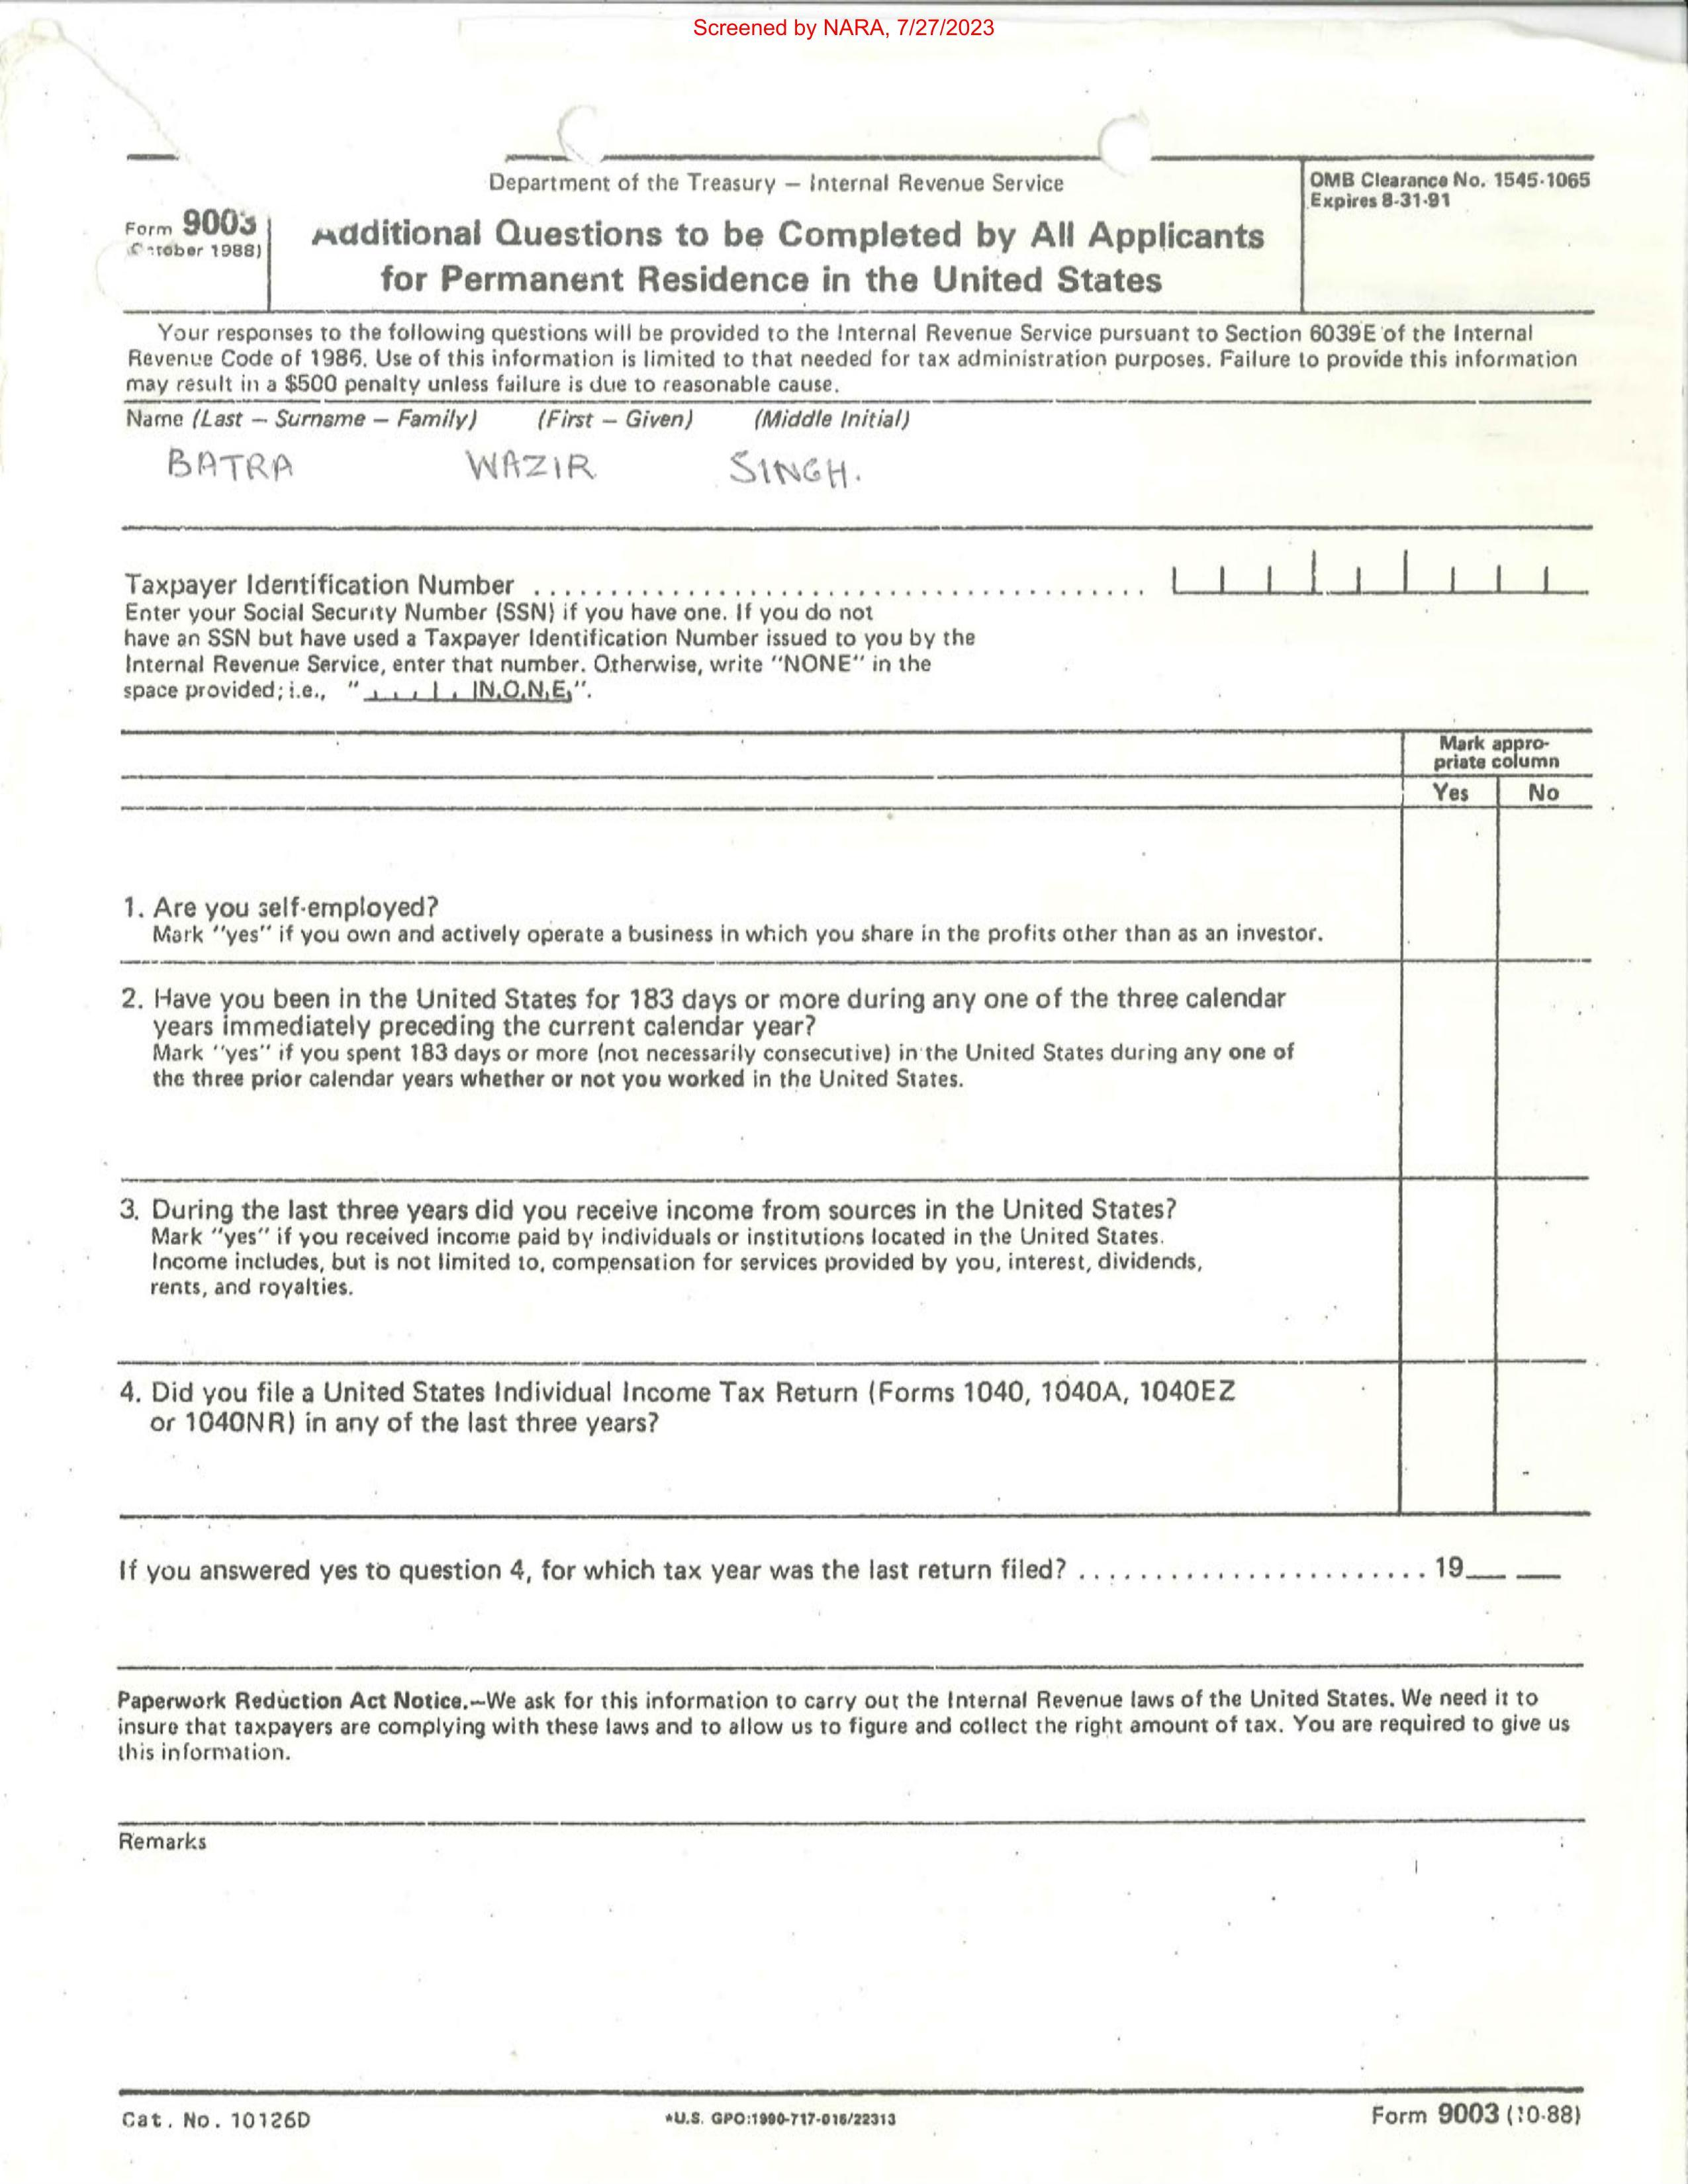 Screened by NARA, 7/27/2023
Department of the Treasury — Internal Revenue Service
OMB Clearance No. 1545-1065
Expires 8-31-91
Form 9003
(October 1988)
Additional Questions to be Completed by All Applicants
for Permanent Residence in the United States
Your responses to the following questions will be provided to the Internal Revenue Service pursuant to Section 6039E of the Internal
Revenue Code of 1986. Use of this information is limited to that needed for tax administration purposes. Failure to provide this information
may result in a $500 penalty unless failure is due to reasonable cause.
Name (Last — Surname — Family) (First — Given) (Middle Initial)
BATRA WAZIR SINGH.
Taxpayer Identification Number
Enter your Social Security Number (SSN) if you have one. If you do not
have an SSN but have used a Taxpayer Identification Number issued to you by the
Internal Revenue Service, enter that number. Otherwise, write "NONE" in the
space provided; i.e., " N.O.N.E."
Mark appro-
priate column
Yes No
1. Are you self-employed?
Mark "yes" if you own and actively operate a business in which you share in the profits other than as an investor.
2. Have you been in the United States for 183 days or more during any one of the three calendar
years immediately preceding the current calendar year?
Mark "yes" if you spent 183 days or more (not necessarily consecutive) in the United States during any one of
the three prior calendar years whether or not you worked in the United States.
3. During the last three years did you receive income from sources in the United States?
Mark "yes" if you received income paid by individuals or institutions located in the United States.
Income includes, but is not limited to, compensation for services provided by you, interest, dividends,
rents, and royalties.
4. Did you file a United States Individual Income Tax Return (Forms 1040, 1040A, 1040EZ
or 1040NR) in any of the last three years?
If you answered yes to question 4, for which tax year was the last return filed? 19__ __
Paperwork Reduction Act Notice.—We ask for this information to carry out the Internal Revenue laws of the United States. We need it to
insure that taxpayers are complying with these laws and to allow us to figure and collect the right amount of tax. You are required to give us
this information.
Remarks
Cat. No. 10126D
*U.S. GPO:1990-717-016/22313
Form 9003 (10-88)